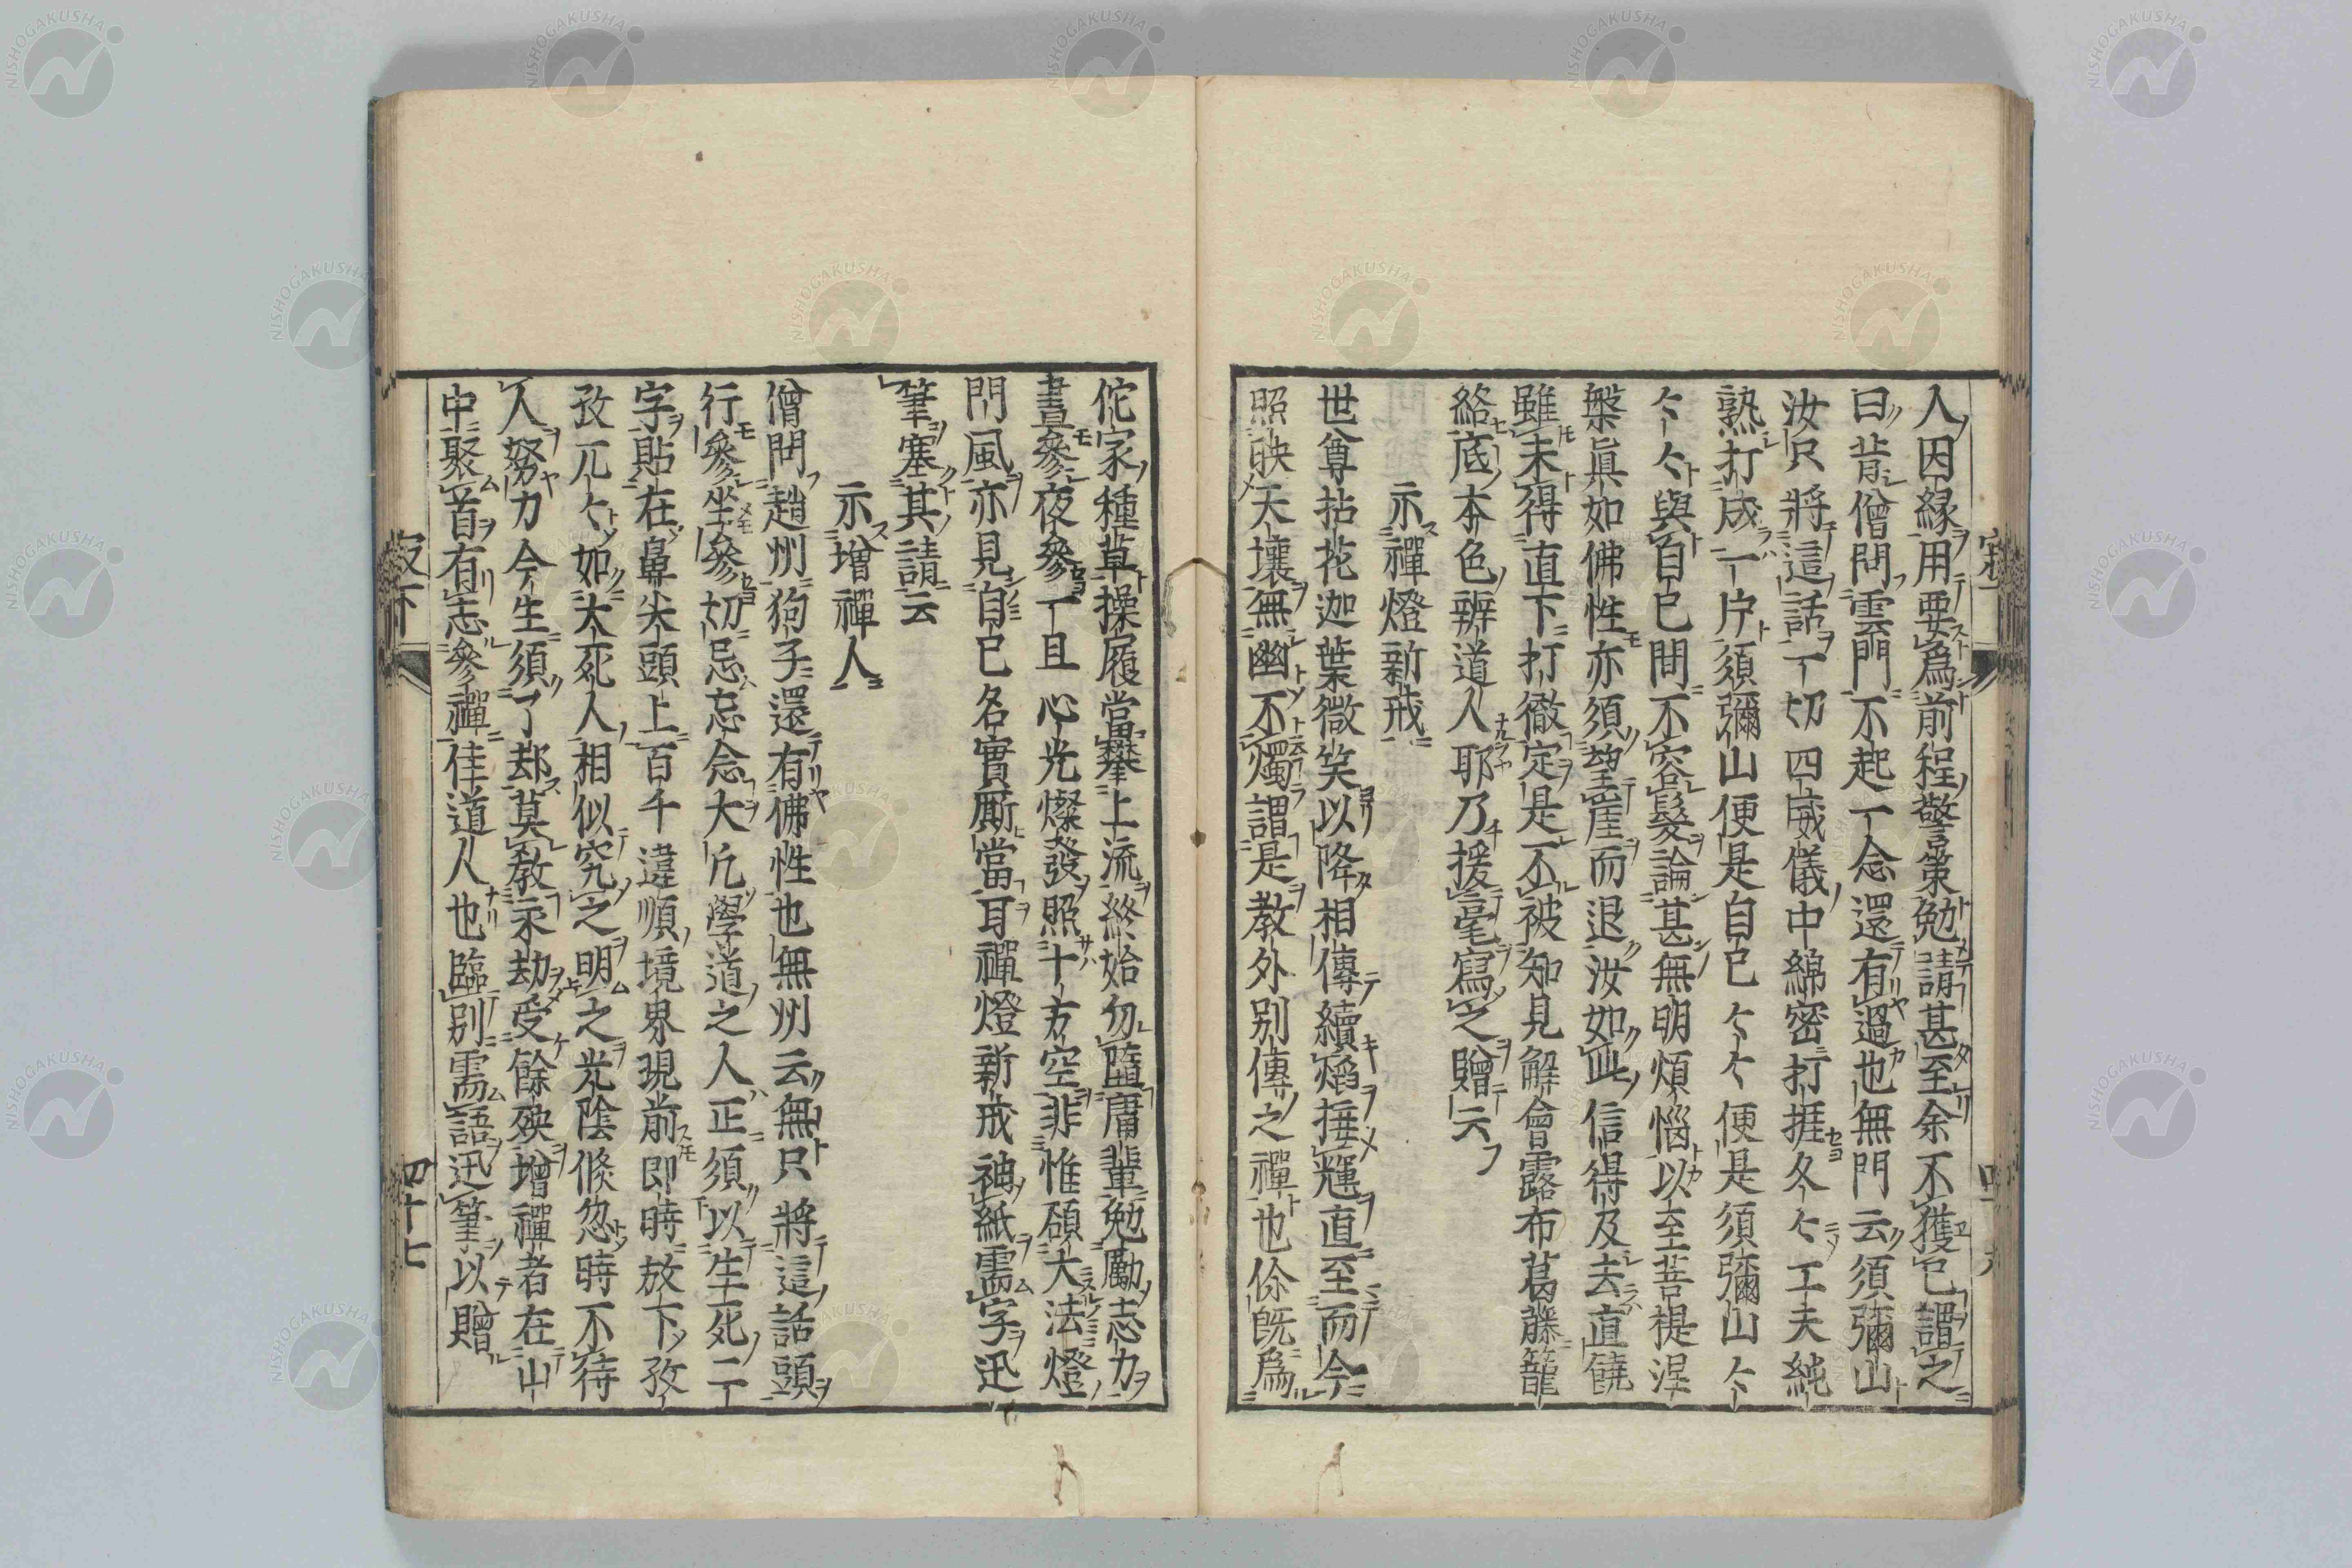 人因緣用要爲前程警策勉請甚至余不獲已謂之
曰昔僧問雲門不起一念還有過也無門云須彌山
汝只將這話一切四威儀中綿密打捱久々工夫純
熟打成一片須彌山便是自己々々便是須彌山々
々々與自己間不容髮論甚無明煩惱以至菩提涅
槃眞如佛性亦須望崖而退汝如此信得及去直饒
雖未得直下打徹定是不被知見解會露布葛藤籠
絡底本色辨道人耶乃援毫寫之贈云
示禪燈新戒
世尊拈花迦葉微笑以降相傳續焰捶輝直至而今
照映天壤無幽不燭謂是教外别傳之禪也你既爲
佗家種草操履當攀上流終始勿墮庸輩勉勵志力
晝參夜參一旦心光燦發照十方空非惟碩大法燈
門風亦見自己名實厮當耳禪燈新戒袖紙需字迅
筆塞其請云
示增禪人
僧問趙州狗子還有佛性也無州云無只將這話頭
行參坐參切忌忘念大凡學道之人正須以生死二
字貼在鼻尖頭上百千違順境界現前即時放下孜
孜兀々如大死人相似究之明之光陰倏忽時不待
人努力今生須了却莫教永劫受餘殃增禪者在山
中聚首有志參禪佳道人也臨别需語迅筆以贈
四十七